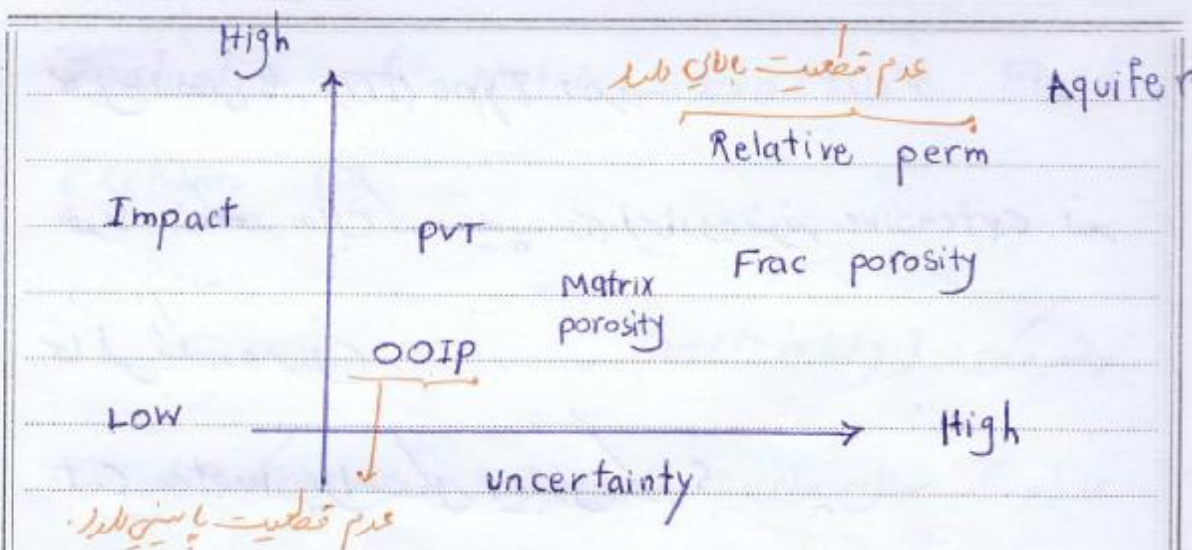 High
عدم قطعیت بالایی دارد
Aquifer
Relative perm
Impact
PVT
Frac porosity
Matrix
porosity
OOIP
LOW
High
uncertainty
عدم قطعیت پایینی دارد.